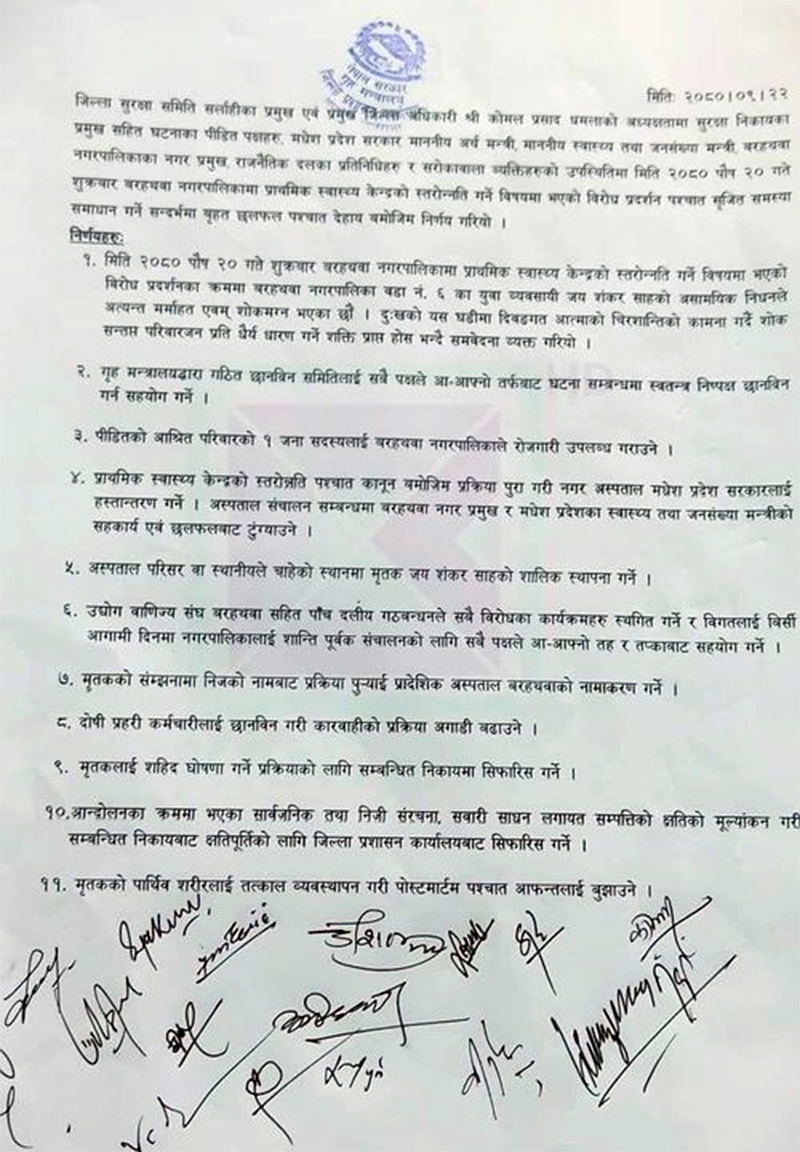 नेपाल सरकार
गृह मन्त्रालय
मितिः २०८०।०९।२२
जिल्ला सुरक्षा समिति सर्लाहीका प्रमुख एवं प्रमुख जिल्ला अधिकारी श्री कोमल प्रसाद धमलाको अध्यक्षतामा सुरक्षा निकायका
प्रमुख सहित घटनाका पीडित पक्षहरु, मधेश प्रदेश सरकार माननीय अर्थ मन्त्री, माननीय स्वास्थ्य तथा जनसंख्या मन्त्री, बरहथवा
नगरपालिकाका नगर प्रमुख, राजनैतिक दलका प्रतिनिधिहरु र सरोकावाला व्यक्तिहरुको उपस्थितिमा मिति २०८० पौष २० गते
शुक्रबार बरहथवा नगरपालिकामा प्राथमिक स्वास्थ्य केन्द्रको स्तरोन्नति गर्ने विषयमा भएको विरोध प्रदर्शन पश्चात सृजित समस्या
समाधान गर्ने सन्दर्भमा बृहत छलफल पश्चात देहाय बमोजिम निर्णय गरियो ।
निर्णयहरुः
१. मिति २०८० पौष २० गते शुक्रबार बरहथवा नगरपालिकामा प्राथमिक स्वास्थ्य केन्द्रको स्तरोन्नति गर्ने विषयमा भएको
विरोध प्रदर्शनका क्रममा बरहथवा नगरपालिका वडा नं. ६ का युवा व्यवसायी जय शंकर साहको असामयिक निधनले
अत्यन्त मर्माहत एवम् शोकमग्न भएका छौं । दुःखको यस घडीमा दिवङगत आत्माको चिरशान्तिको कामना गर्दै शोक
सन्तप्त परिवारजन प्रति धैर्य धारण गर्ने शक्ति प्राप्त होस भन्दै समवेदना व्यक्त गरियो ।
२. गृह मन्त्रालयद्वारा गठित छानविन समितिलाई सबै पक्षले आ-आफ्नो तर्फबाट घटना सम्बन्धमा स्वतन्त्र निष्पक्ष छानविन
गर्न सहयोग गर्ने ।
३. पीडितको आश्रित परिवारको १ जना सदस्यलाई बरहथवा नगरपालिकाले रोजगारी उपलब्ध गराउने ।
४. प्राथमिक स्वास्थ्य केन्द्रको स्तरोन्नति पश्चात कानून बमोजिम प्रक्रिया पुरा गरी नगर अस्पताल मधेश प्रदेश सरकारलाई
हस्तान्तरण गर्ने । अस्पताल संचालन सम्बन्धमा बरहथवा नगर प्रमुख र मधेश प्रदेशका स्वास्थ्य तथा जनसंख्या मन्त्रीको
सहकार्य एवं छलफलबाट टुंग्याउने ।
५. अस्पताल परिसर वा स्थानीयले चाहेको स्थानमा मृतक जय शंकर साहको शालिक स्थापना गर्ने ।
६. उद्योग वाणिज्य संघ बरहथवा सहित पाँच दलीय गठबन्धनले सबै विरोधका कार्यक्रमहरु स्थगित गर्ने र विगतलाई विर्सी
आगामी दिनमा नगरपालिकालाई शान्ति पूर्वक संचालनको लागि सबै पक्षले आ-आफ्नो तह र तप्काबाट सहयोग गर्ने ।
७. मृतकको संम्झनामा निजको नामबाट प्रक्रिया पुर्‍याई प्रादेशिक अस्पताल बरहथवाको नामाकरण गर्ने ।
८. दोषी प्रहरी कर्मचारीलाई छानविन गरी कारवाहीको प्रक्रिया अगाडी बढाउने ।
९. मृतकलाई शहिद घोषणा गर्ने प्रक्रियाको लागि सम्बन्धित निकायमा सिफारिस गर्ने ।
१०.आन्दोलनका क्रममा भएका सार्वजनिक तथा निजी संरचना, सवारी साधन लगायत सम्पत्तिको क्षतिको मूल्यांकन गरी
सम्बन्धित निकायबाट क्षतिपूर्तिको लागि जिल्ला प्रशासन कार्यालयबाट सिफारिस गर्ने ।
११. मृतकको पार्थिव शरीरलाई तत्काल व्यवस्थापन गरी पोस्टमार्टम पश्चात आफन्तलाई बुझाउने ।